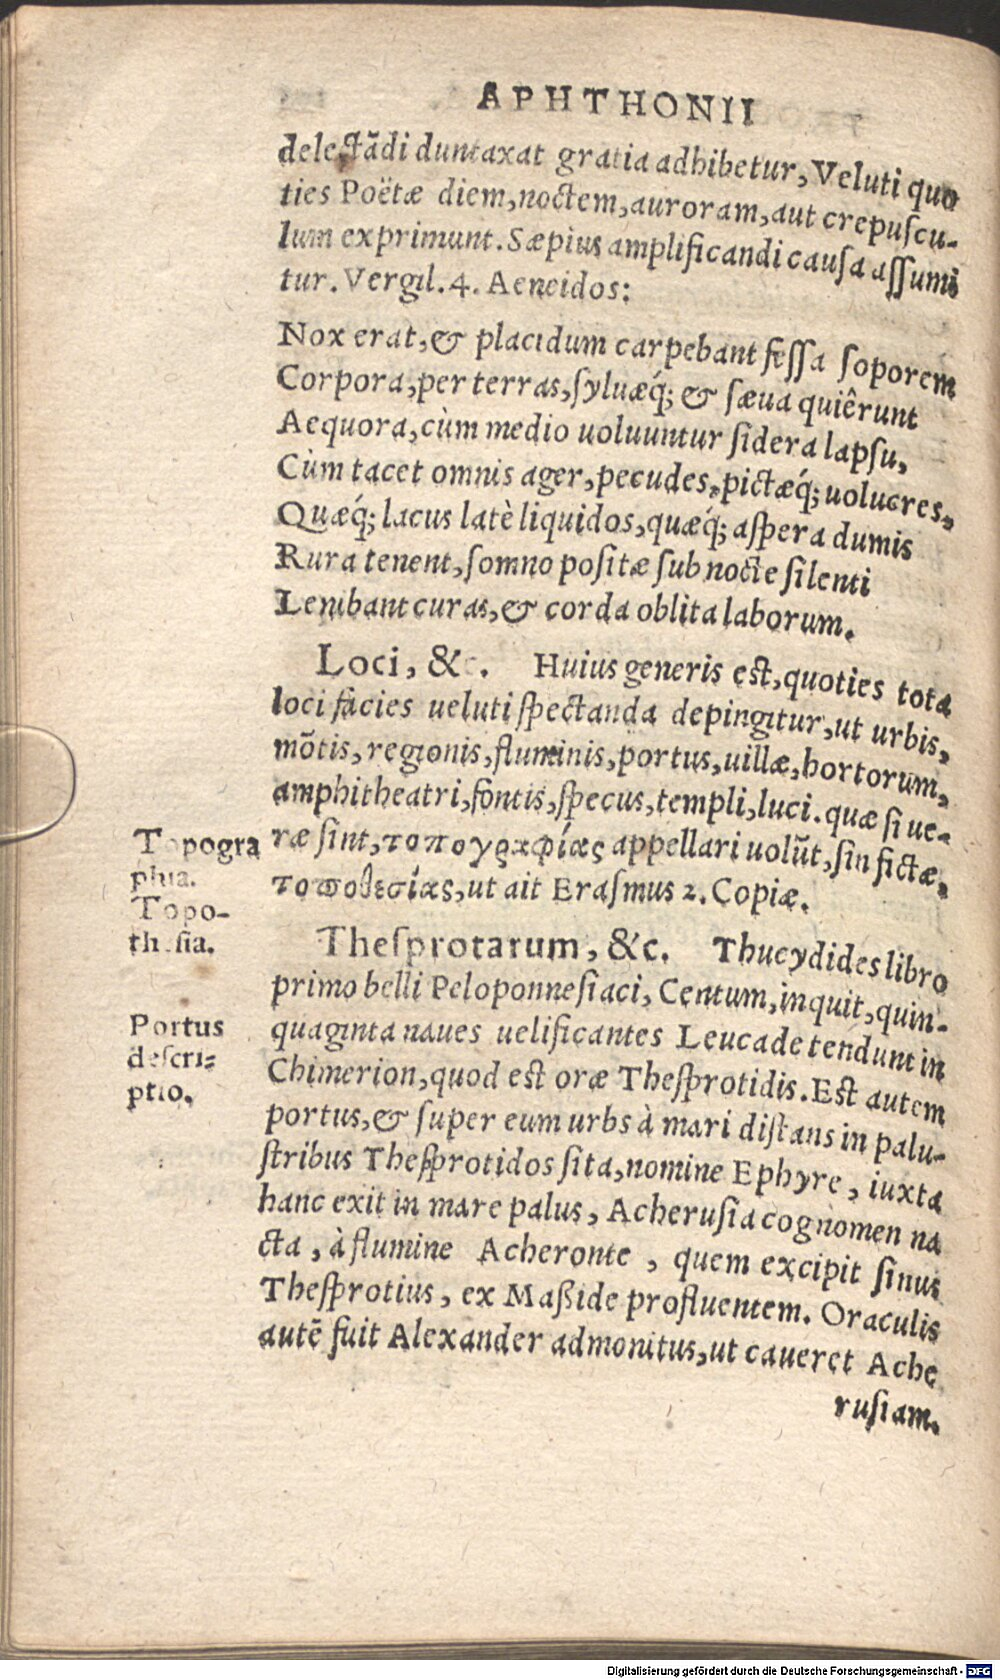 APHTHONII
delectãdi duntaxat gratia adhibetur, Veluti quo
ties Poëtæ diem, noctem, auroram, aut crepuscu-
lum exprimunt. Sæpius amplificandi causa assumi
tur. Vergil. 4. Aeneidos:
Nox erat, & placidum carpebant fessa soporem
Corpora, per terras, syluæq́; & sæua quiêrunt
Aequora, cùm medio uoluuntur sidera lapsu,
Cùm tacet omnis ager, pecudes, pictæq́; uolucres,
Quæq́; lacus latè liquidos, quæq́; aspera dumis
Rura tenent, somno positæ sub nocte silenti
Lenibant curas, & corda oblita laborum.
Loci, &c. Huius generis est, quoties tota
loci facies ueluti spectanda depingitur, ut urbis,
mõtis, regionis, fluminis, portus, uillæ, hortorum,
amphitheatri, fontis, specus, templi, luci. quæ si ue-
ræ sint, τοπογραφίας appellari uolũt, sin fictæ,
τοποθεσίας, ut ait Erasmus 2. Copiæ.
Topogra
phia.
Topo-
thesia.
Thesprotarum, &c. Thucydides libro
primo belli Peloponnesiaci, Centum, inquit, quin-
quaginta naues uelificantes Leucade tendunt in
Chimerion, quod est oræ Thesprotidis. Est autem
portus, & super eum urbs à mari distans in palu-
stribus Thesprotidos sita, nomine Ephyre, iuxta
hanc exit in mare palus, Acherusia cognomen na
cta, à flumine Acheronte, quem excipit sinus
Thesprotius, ex Maßide profluentem. Oraculis
autẽ fuit Alexander admonitus, ut caueret Ache
rusiam.
Portus
descri-
ptio.
Digitalisierung gefördert durch die Deutsche Forschungsgemeinschaft - DFG